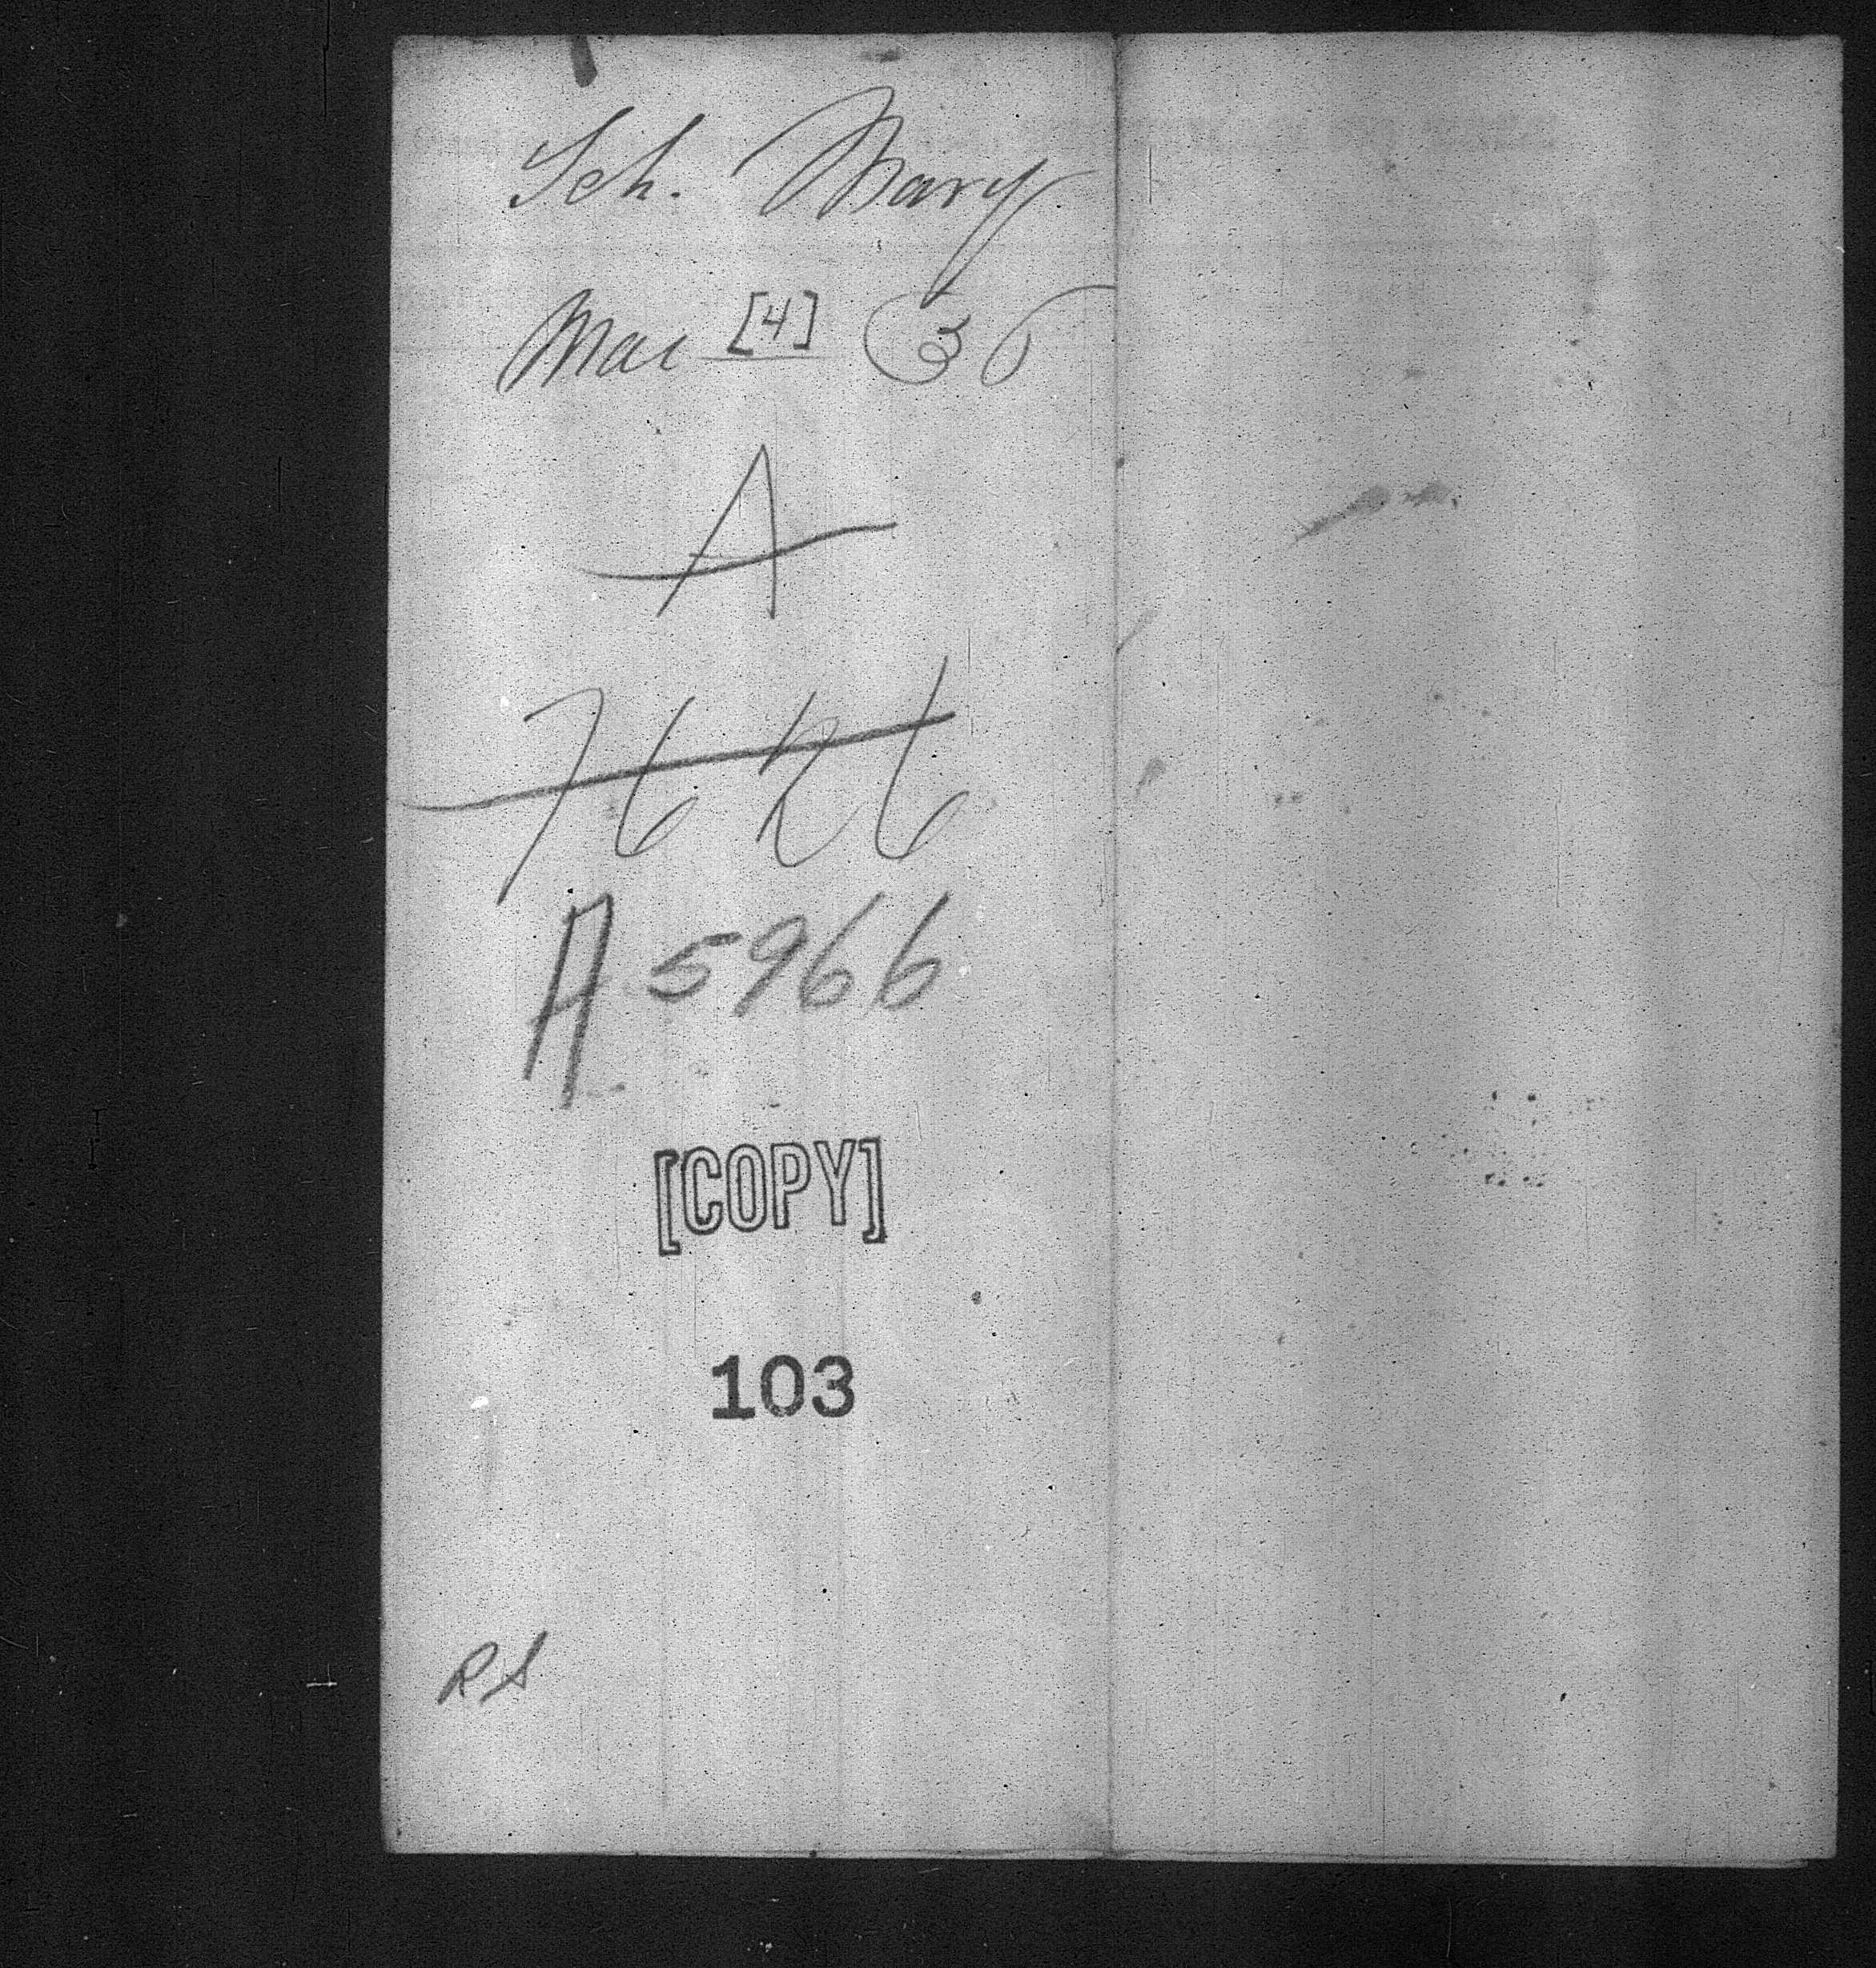 Sch. Mary
Mar [4] 36
A
A 5966
[COPY]
103
RS